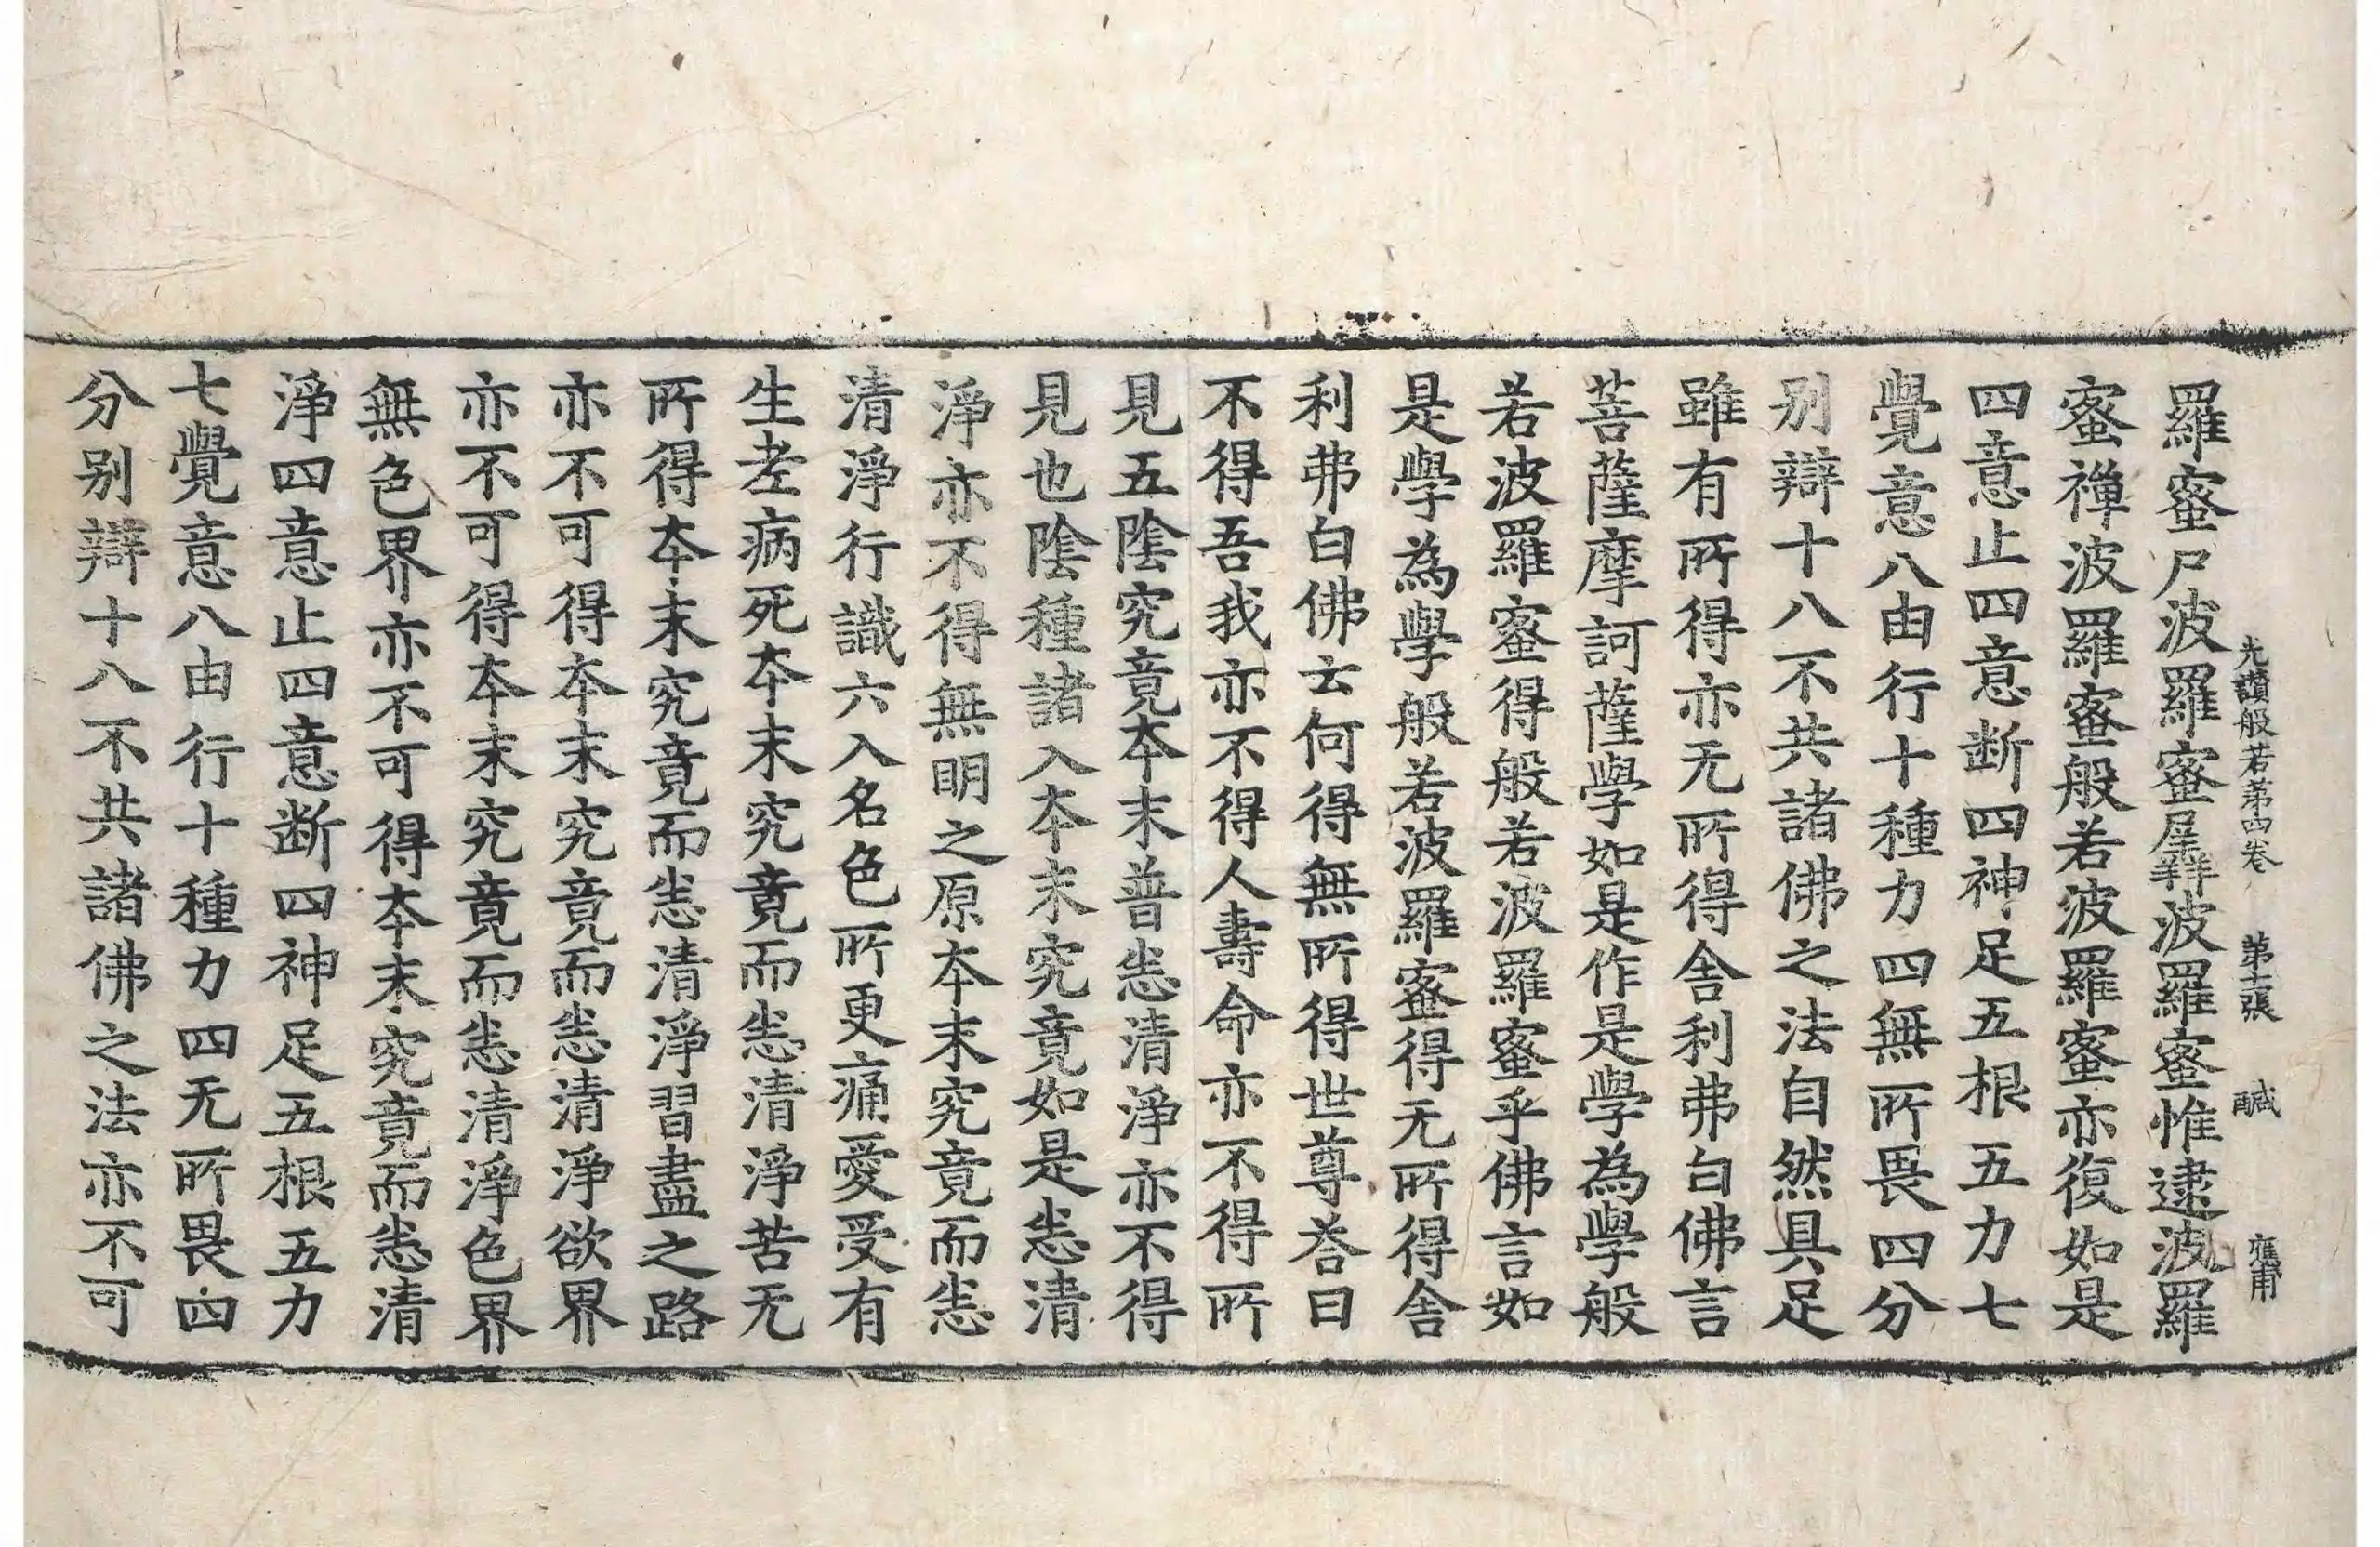 光讃般若第四卷 第十二張 醎 應甫
羅蜜尸波羅蜜羼波羅蜜惟逮波羅
蜜禪波羅蜜般若波羅蜜亦復如是
四意止四意断四神足五根五力七
覺意八由行十種力四無所畏四分
别辯十八不共諸佛之法自然具足
雖有所得亦无所得舍利弗白佛言
菩薩摩訶薩學如是作是學為學般
若波羅蜜得般若波羅蜜乎佛言如
是學為學般若波羅蜜得无所得舍
利弗白佛云何得無所得世尊荅曰
不得吾我亦不得人壽命亦不得所
見五陰究竟本末普恙清淨亦不得
見也陰種諸入本末究竟如是恙清
淨亦不得無明之原本末究竟而恙
清淨行識六入名色所更痛愛受有
生老病死本末究竟而恙清淨苦无
所得本末究竟而恙清淨習盡之路
亦不可得本末究竟而恙清淨欲界
亦不可得本末究竟而恙清淨色界
無色界亦不可得本末究竟而恙清
淨四意止四意断四神足五根五力
七覺意八由行十種力四无所畏四
分别辯十八不共諸佛之法亦不可